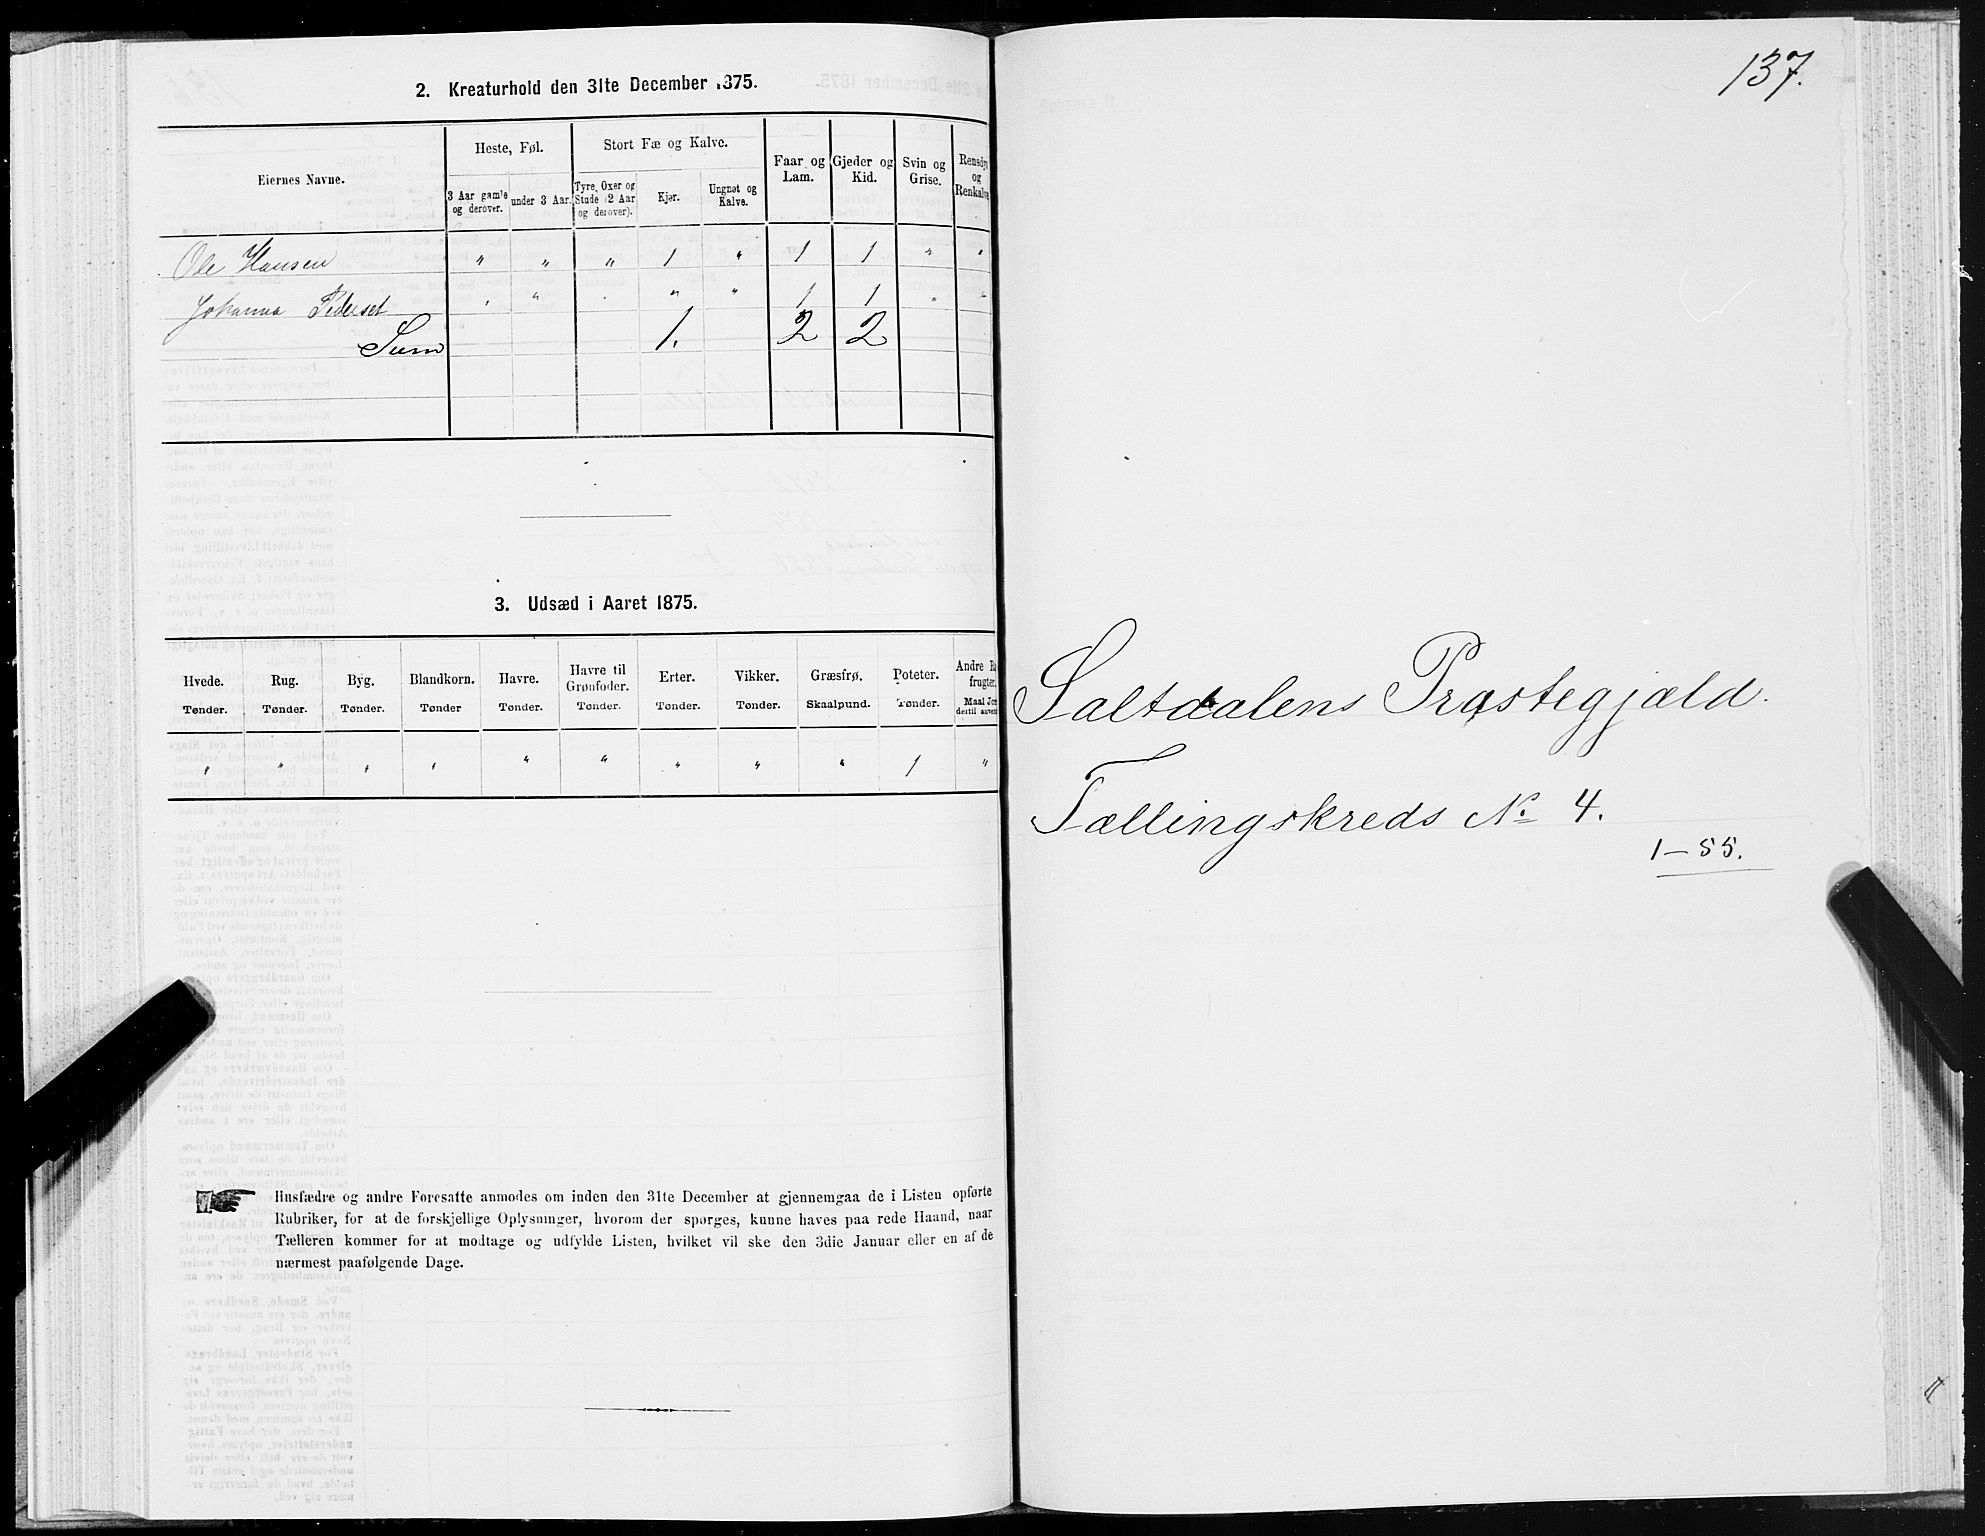 2. Kreaturhold den 31te December 1875.
Eiernes Navne.
Heste, Føl.
3 Aar gamle og derover.
under 3 Aar.
Stort Fæ og Kalve.
Tyre, Oxer og Stude (2 Aar og derover).
Kjør.
Ungnøt og Kalve.
Faar og Lam.
Gjeder og Kid.
Svin og Grise.
Rensdyr og Renkalve
Ole Hansen " " " 1 " 1 1 " "
Johanna Pederset " " " " " 1 1 " "
Sum 1. 2 2
3. Udsæd i Aaret 1875.
Hvede. Rug. Byg. Blandkorn. Havre. Havre til Grønfoder. Erter. Vikker. Græsfrø. Poteter. Andre Ro frugter
Tønder. Tønder. Tønder. Tønder Tønder. Tønder. Tønder. Tønder. Skaalpund. Tønder. Maal Jor dertil anvend
" " " " " " " " " 1 "
Husfædre og andre Foresatte anmodes om inden den 31te December at gjennemgaa de i Listen opførte
Rubriker, for at de forskjellige Oplysninger, hvorom der spørges, kunne haves paa rede Haand, naar
Tælleren kommer for at modtage og udfylde Listen, hvilket vil ske den 3die Januar eller en af de
nærmest paafølgende Dage.
137.
Saltdalens Præstegjæld.
Tællingskreds No 4.
1-55.